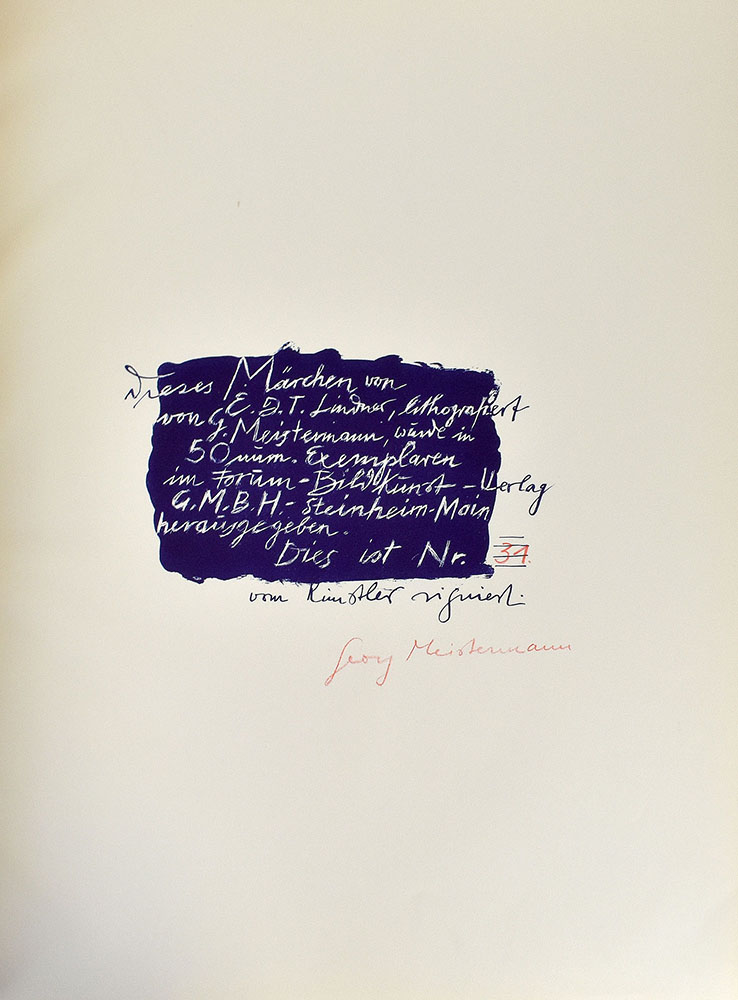 Dieses Märchen von
von E. D. T. Lindner, lithografiert
G. Meistermann, wurde in
50 num. Exemplaren
im Forum-Bildkunst-Verlag
G.M.B.H.-Steinheim-Main
herausgegeben.
Dies ist Nr. 31.
vom Künstler signiert.
Georg Meistermann